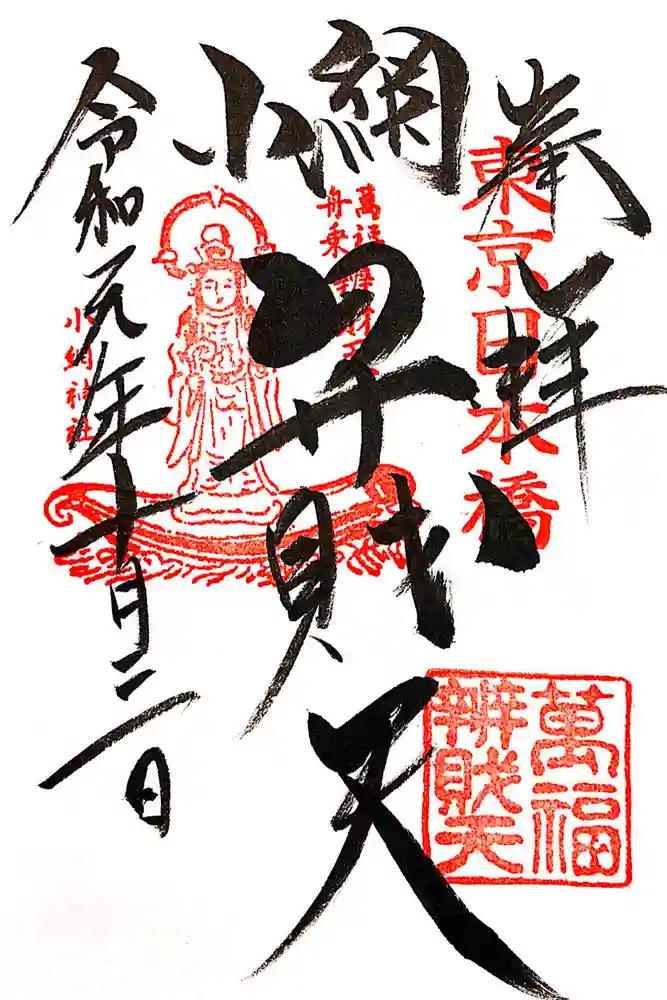 奉拝
東京日本橋
小網
弁財天
萬福
舟乗
小網神社
令和元年十月二十一日
萬福
辨財天